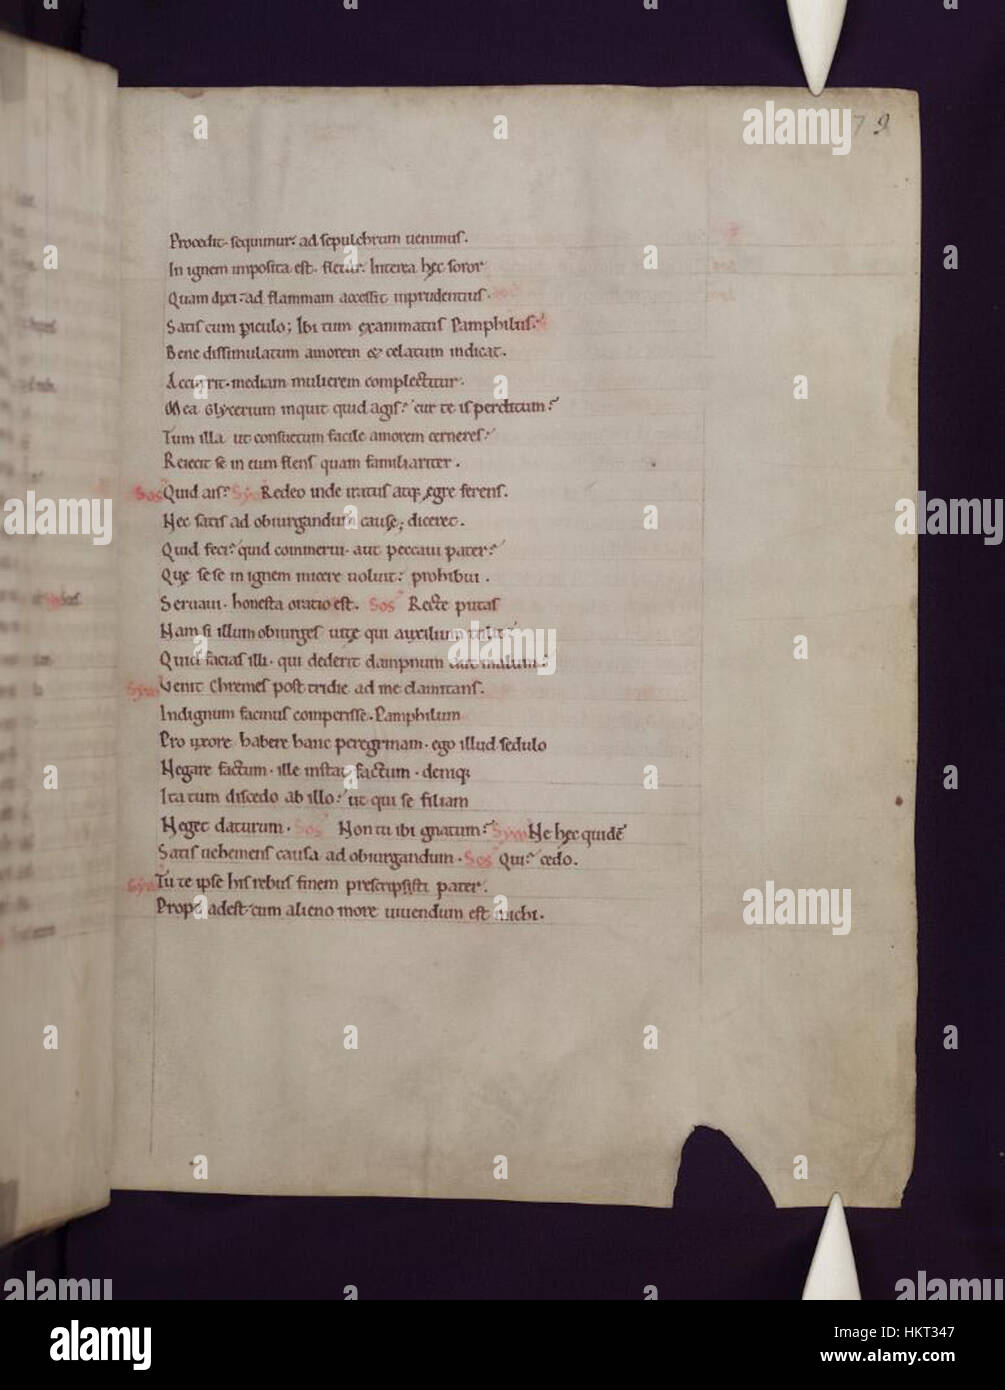 79
Procedit. sequimur. ad sepulchrum uenimus.
In ignem imposita est. fletur. Interea hęc soror
Quam dixi. ad flammam accessit inprudentius.
Satis cum piculo; Ibi tum exanimatus Pamphilus.
Bene dissimulatum amorem & celatum indicat.
Accurrit. mediam mulierem complectitur.
Mea Glycerium inquit quid agis? cur te is perditum?
Tum illa ut consuetum facile amorem cerneres.
Reiecit se in eum flens quam familiariter.
Sos Quid ais? Sy Redeo inde iratus atq; ęgre ferens.
Nec satis ad obiurgandum causę; diceret.
Quid feci? quid commerui. aut peccaui pater?
Quę sese in ignem inicere uoluit. prohibui.
Seruaui. honesta oratio est. Sos Recte putas
Nam si illum obiurges uitę qui auxilium tulit
Quid facias illi. qui dederit dampnum aut malum?
Sym Venit Chremes post tridie ad me clamitans.
Indignum facinus comperisse. Pamphilum
Pro uxore habere hanc peregrinam. ego illud sedulo
Negare factum. ille instat factum. deniq;
Ita tum discedo ab illo. ut qui se filiam
Neget daturum. Sos Non tu ibi gnatum? Sym Ne hęc quidē
Satis uehemens causa ad obiurgandum. Sos Qui? cedo.
Sym Tu te ipse his rebus finem prescripsisti pater.
Prope adest. cum alieno more uiuendum est michi.
alamy
Image ID: HKT347
www.alamy.com